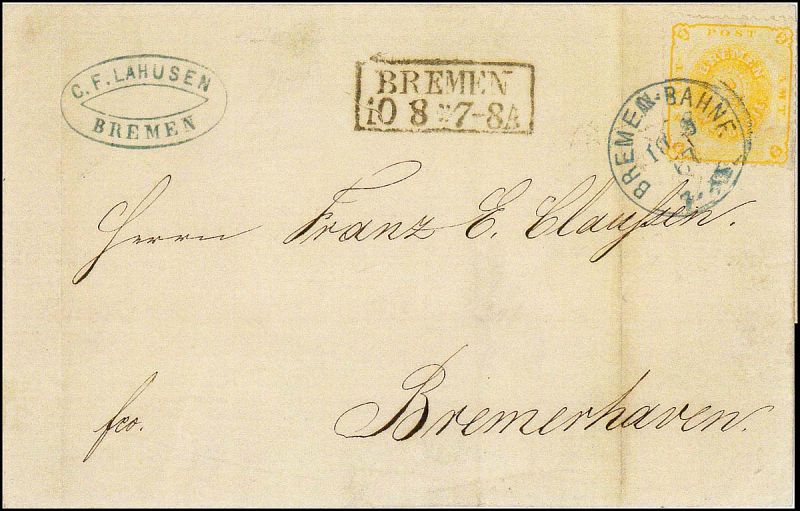 C. F. LAHUSEN
BREMEN
BREMEN
10 8 7-8A
POST
AMT
BREMEN-BAHNH
10 8
Herrn Franz E. Claussen.
fco.
Bremerhaven.